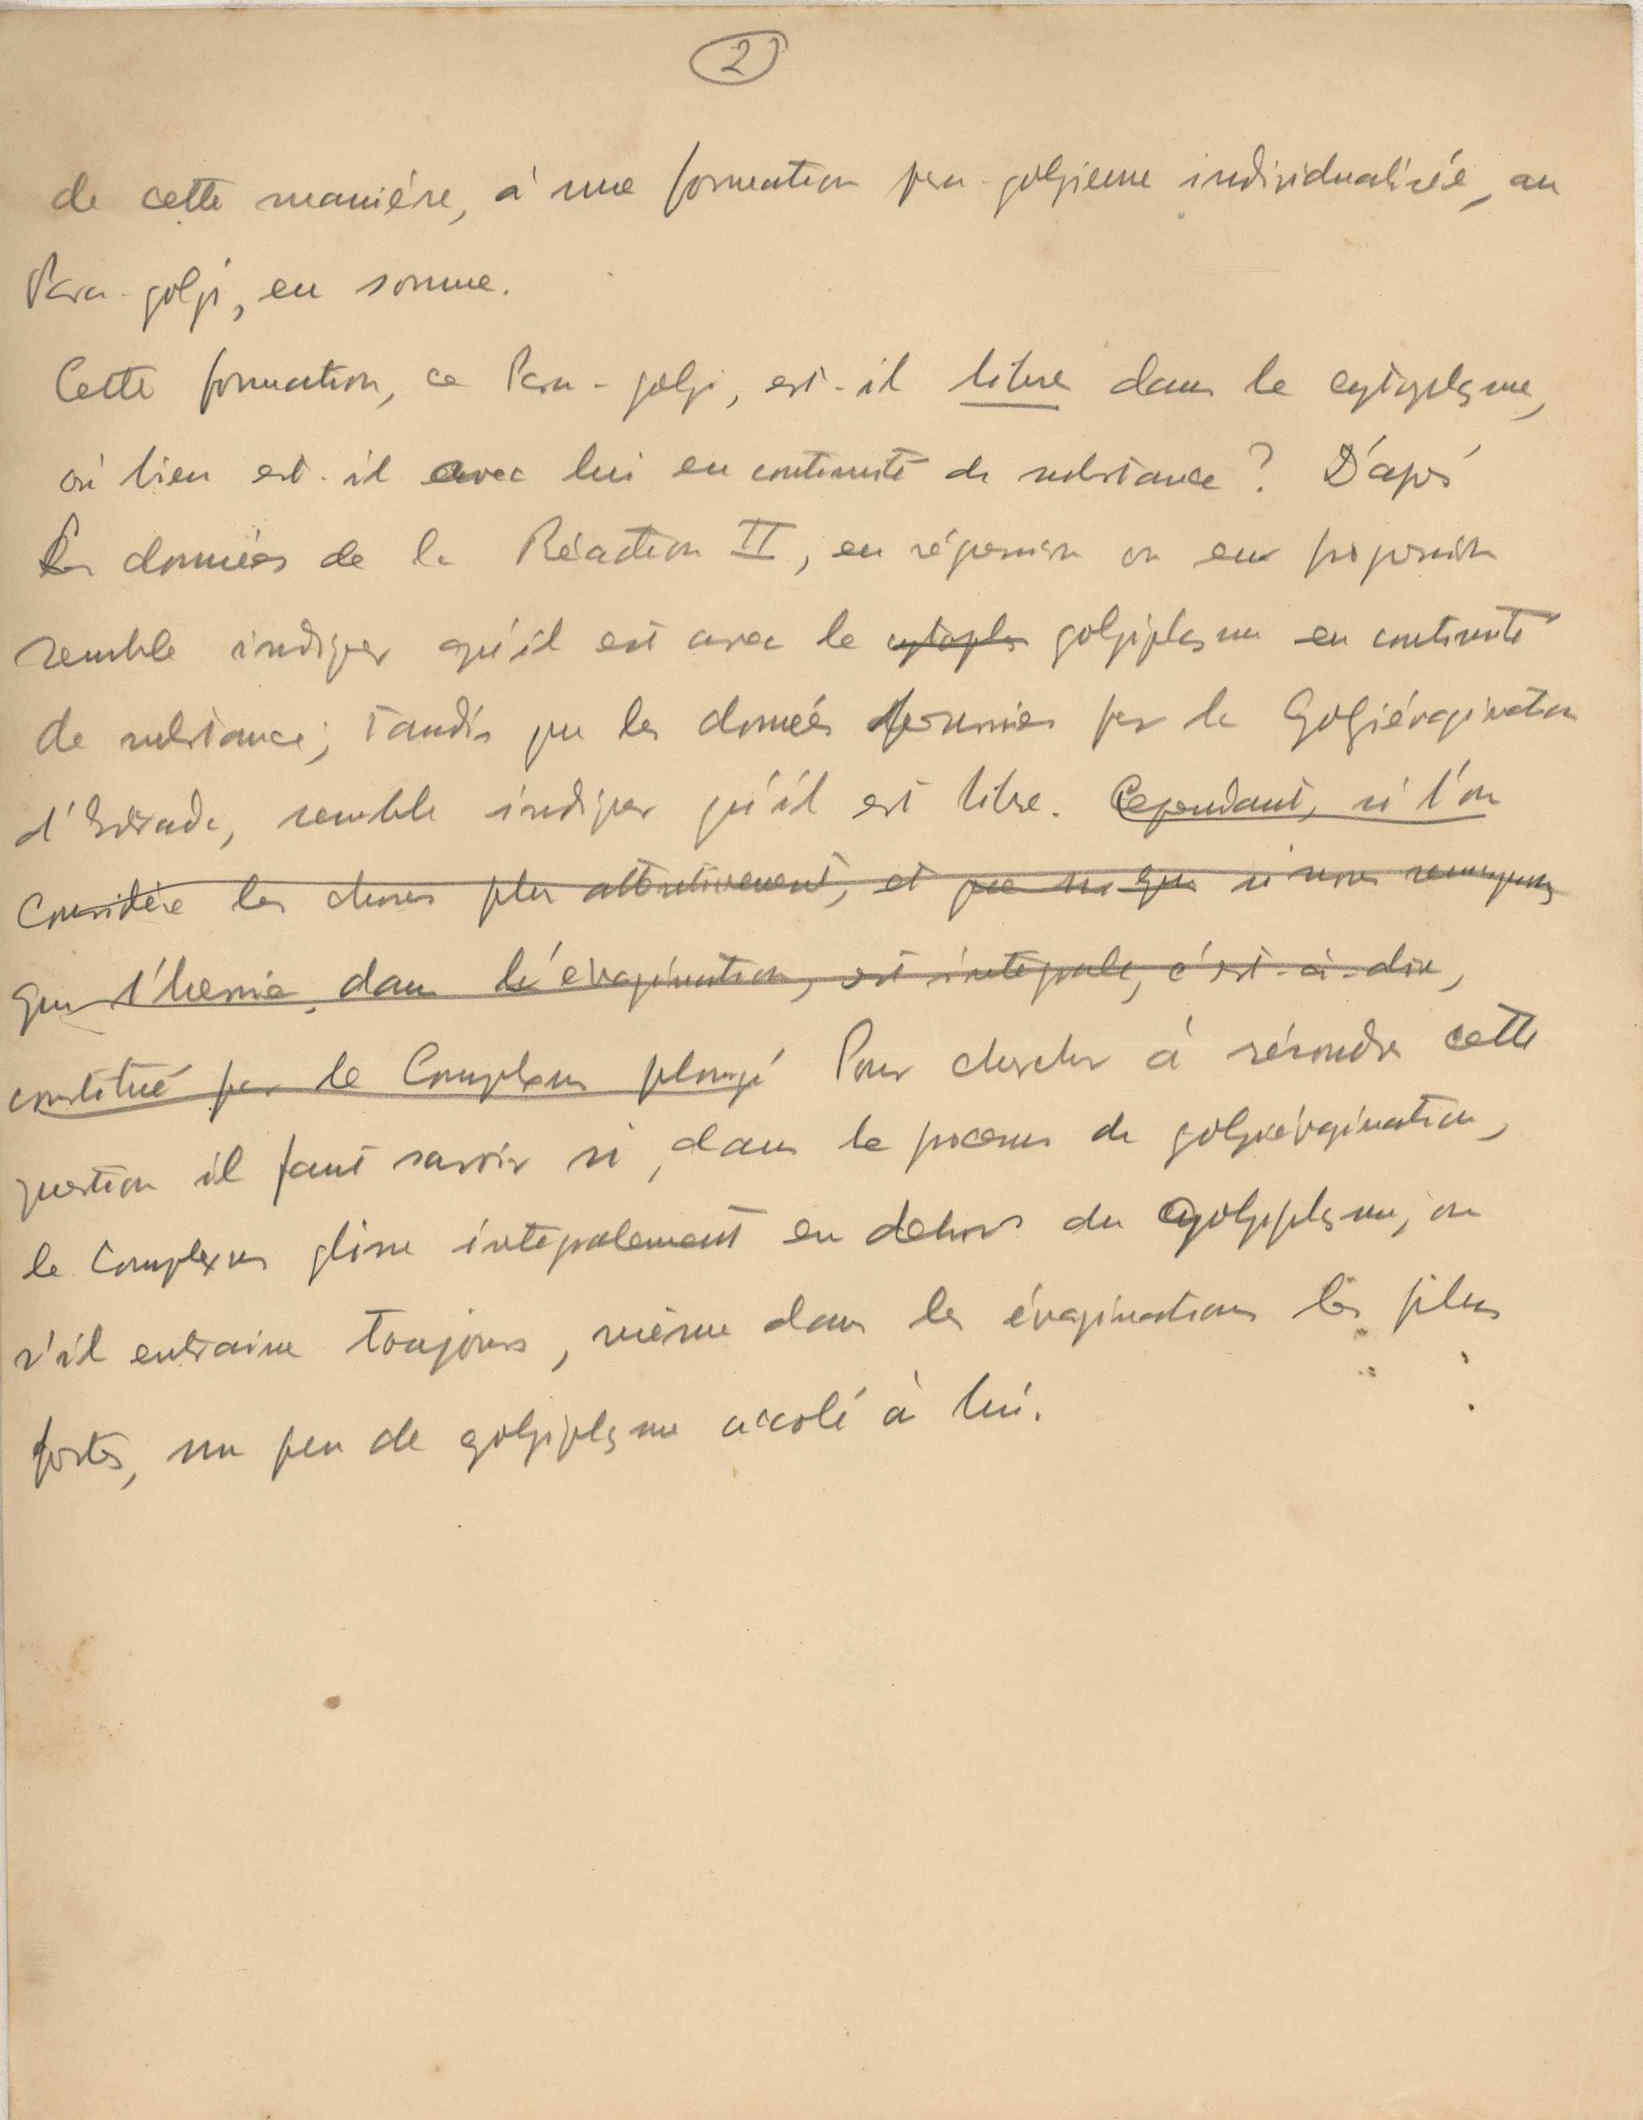 2
de cette manière, à une formation para-golgienne individualisée, au
Para-golgi, en somme.
Cette formation, ce Para-golgi, est-il libre dans le cytoplasme,
où bien est-il avec lui en continuité de substance? D'après
les données de la Réaction II, en répression on en
semble indiquer qu'il est avec le cytopla golgiplasme en continuité
de substance; tandis que les données fournies par la Golgiévagination
d'Estrade, semble indiquer qu'il est libre. Cependant, si l'on
considère les choses plus attentivement, et que si nous remarquons
que l'hernie, dans l'évagination, est intégrale, c'est-à-dire,
constitué par le Complexus plongé Pour chercher à résoudre cette
question il faut savoir si, dans le processus de golgiévagination,
le Complexus glisse intégralement en dehors du golgiplasme, ou
s'il entraine toujours, même dans les évaginations les plus
fortes, un peu de golgiplasme accolé à lui.